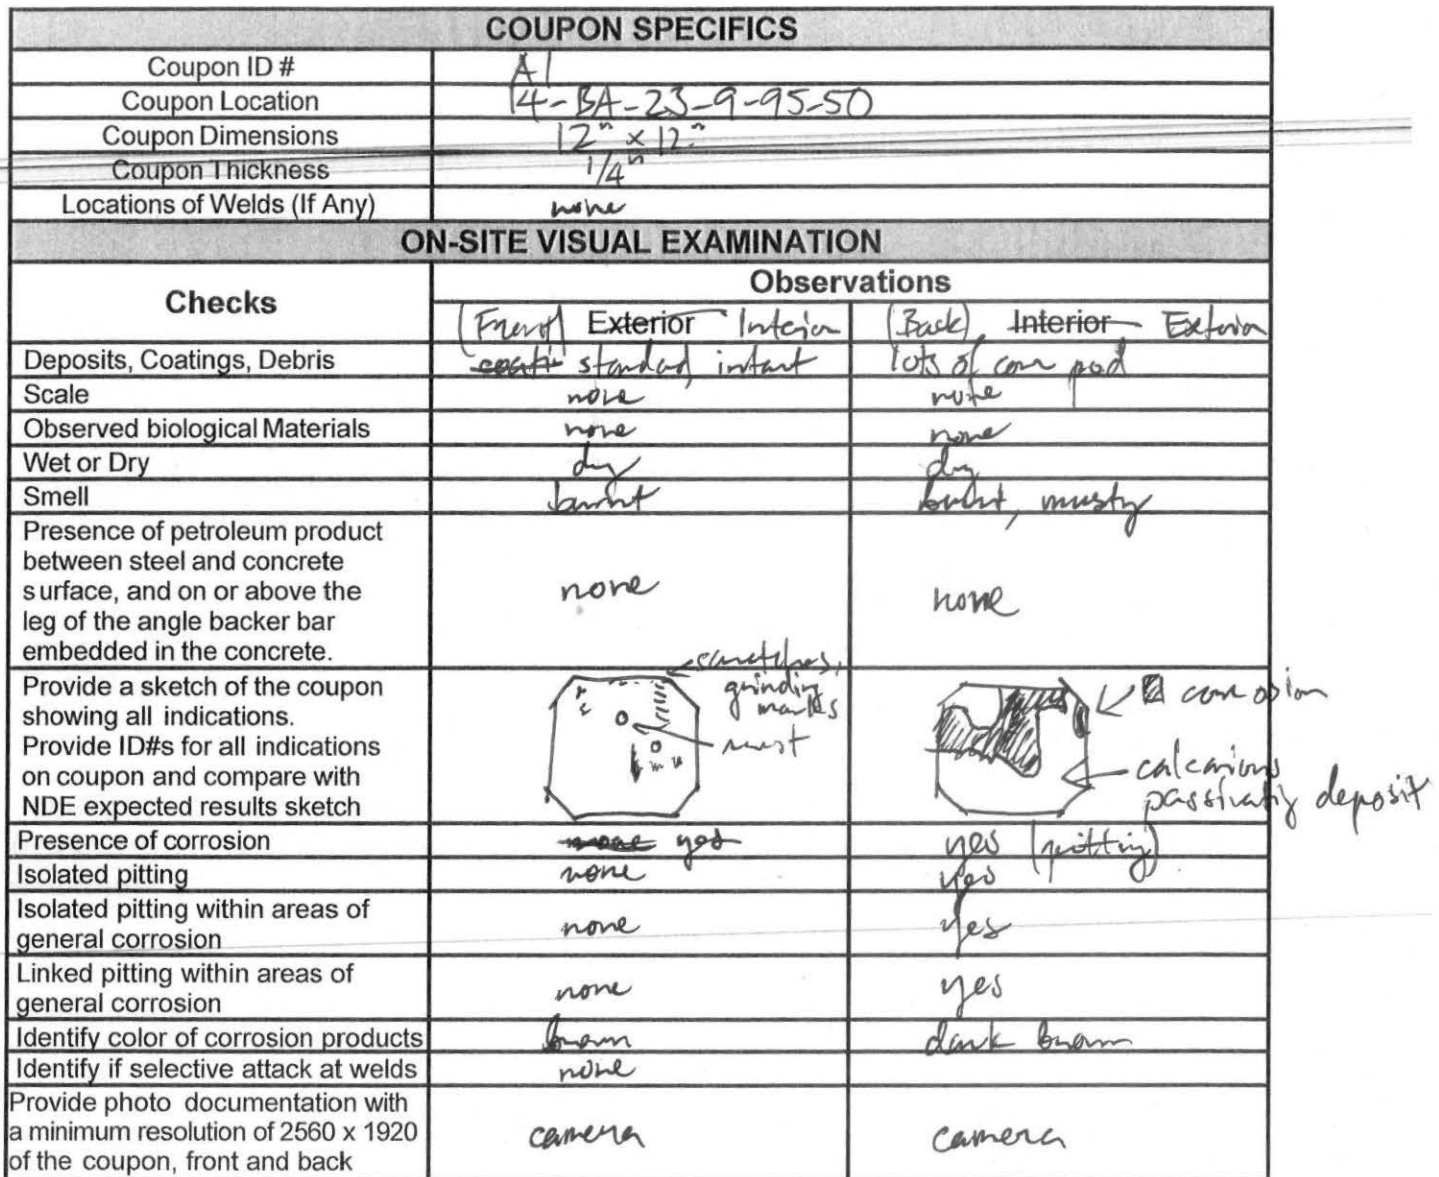 COUPON SPECIFICS
Coupon ID # A1
Coupon Location 14-BA-23-9-95-50
Coupon Dimensions 12" x 12"
Coupon Thickness 1/4"
Locations of Welds (If Any) none
ON-SITE VISUAL EXAMINATION
Checks
Observations
(Front) Exterior Interior (Back) Interior Exterior
Deposits, Coatings, Debris standard, intact lots of corr prod
Scale none none
Observed biological Materials none none
Wet or Dry dry dry
Smell burnt burnt, musty
Presence of petroleum product
between steel and concrete
surface, and on or above the
leg of the angle backer bar
embedded in the concrete.
none none
Provide a sketch of the coupon
showing all indications.
Provide ID#s for all indications
on coupon and compare with
NDE expected results sketch
scratches,
grinding
marks
rust
corrosion
passivating deposit
Presence of corrosion none yes yes (pitting)
Isolated pitting none yes
Isolated pitting within areas of
general corrosion
none yes
Linked pitting within areas of
general corrosion
none yes
Identify color of corrosion products brown dark brown
Identify if selective attack at welds none
Provide photo documentation with
a minimum resolution of 2560 x 1920
of the coupon, front and back
camera camera